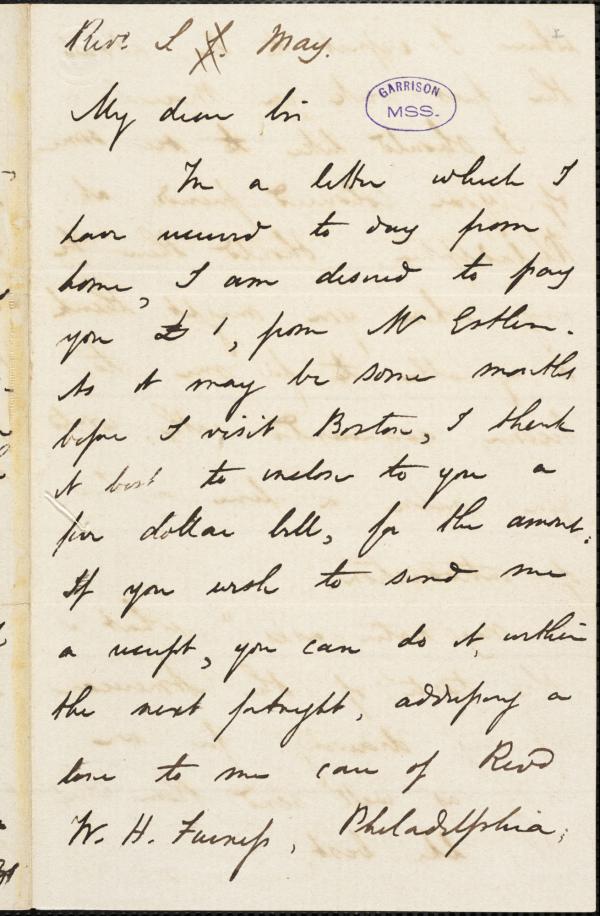 Revd. S J. May.
GARRISON
MSS.
My dear Sir
In a letter which I
have received to day from
home, I am desired to pay
you £ 1, from Mr Estlin.
As it may be some months
before I visit Boston, I think
it best to inclose to you a
five dollar bill, for the amount.
If you wish to send me
a receipt, you can do it, within
the next fortnight, addressing a
line to me care of Revd
W. H. Furness, Philadelphia;